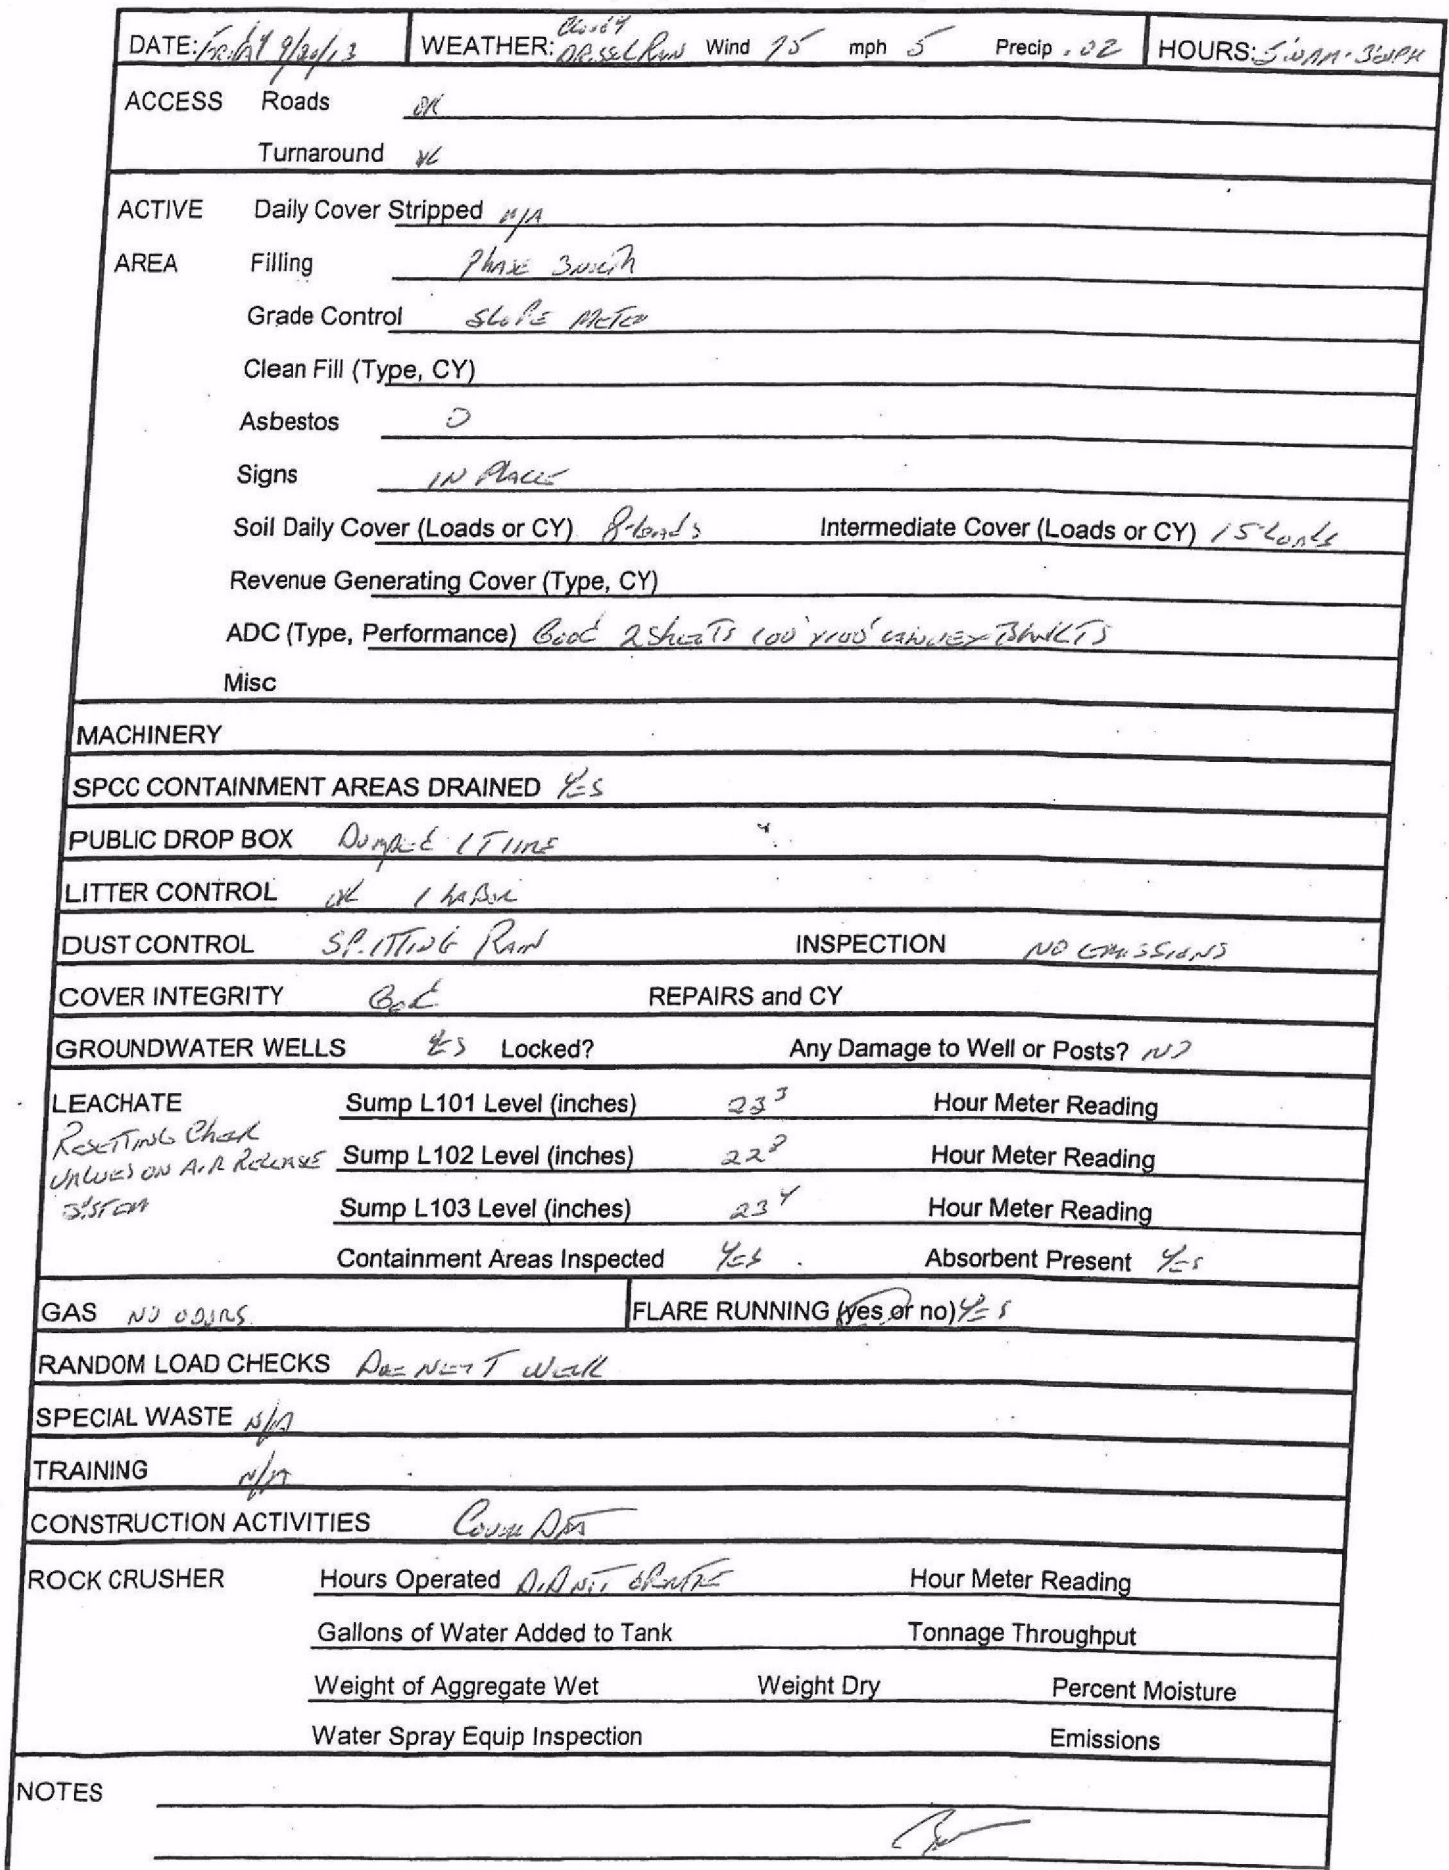 Cloudy
DATE: Friday 9/20/13 WEATHER: Drissel Rain Wind 75 mph 5 Precip .02 HOURS: 5:00AM-3:00PM
ACCESS Roads OK
Turnaround OK
ACTIVE Daily Cover Stripped N/A
AREA Filling Phase 3 North
Grade Control SLOPE METER
Clean Fill (Type, CY)
Asbestos 0
Signs IN PLACE
Soil Daily Cover (Loads or CY) 8-loads Intermediate Cover (Loads or CY) 15 Loads
Revenue Generating Cover (Type, CY)
ADC (Type, Performance) Good 2 Sheets 100'x100'
Misc
MACHINERY
SPCC CONTAINMENT AREAS DRAINED YES
PUBLIC DROP BOX Dumped 1 TIME
LITTER CONTROL OK 1 LABOR
DUST CONTROL SPITTING RAIN INSPECTION NO EMISSIONS
COVER INTEGRITY Good REPAIRS and CY
GROUNDWATER WELLS YES Locked? Any Damage to Well or Posts? NO
LEACHATE Sump L101 Level (inches) 23³ Hour Meter Reading
Resetting Check
VALVES ON AIR RELEASE Sump L102 Level (inches) 22 Hour Meter Reading
SYSTEM Sump L103 Level (inches) 23⁴ Hour Meter Reading
Containment Areas Inspected YES Absorbent Present YES
GAS NO ODORS FLARE RUNNING (yes or no) YES
RANDOM LOAD CHECKS Due NEXT WEEK
SPECIAL WASTE N/A
TRAINING N/A
CONSTRUCTION ACTIVITIES Cover
ROCK CRUSHER Hours Operated DID NOT OPERATE Hour Meter Reading
Gallons of Water Added to Tank Tonnage Throughput
Weight of Aggregate Wet Weight Dry Percent Moisture
Water Spray Equip Inspection Emissions
NOTES